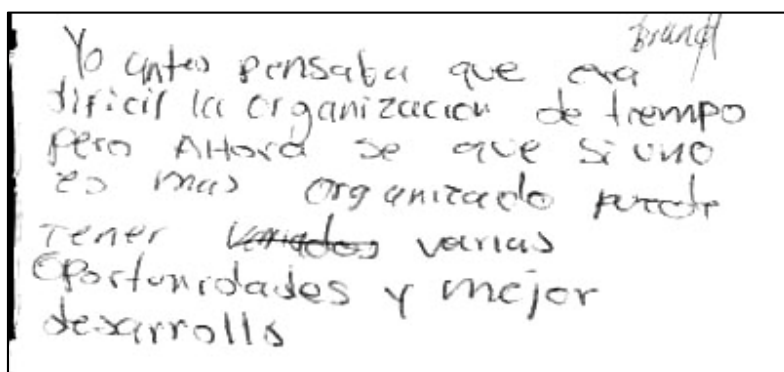 Yo antes pensaba que era
dificil la organizacion de tiempo
pero AHora se que si uno
es mas organizado puede
Tener varias
Oportunidades y mejor
desarrollo